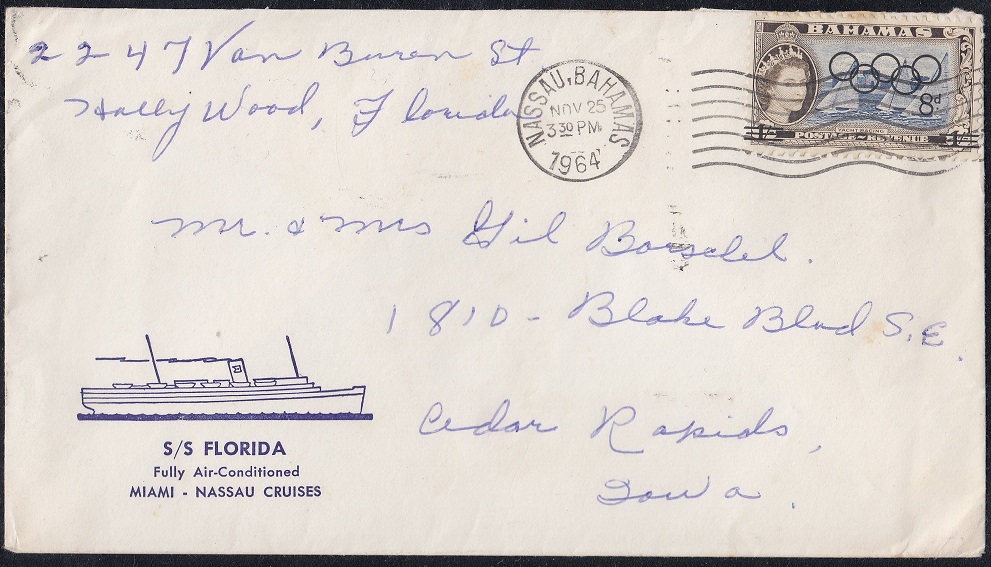 2247 Van Buren St
Holly Wood, Florida
NASSAU, BAHAMAS
NOV 25
3 30 PM
1964
BAHAMAS
8d
POSTAGE & REVENUE
Mr. & Mrs Gil Borschel.
1810 - Blake Blvd S.E.
Cedar Rapids,
Iowa.
S/S FLORIDA
Fully Air-Conditioned
MIAMI - NASSAU CRUISES